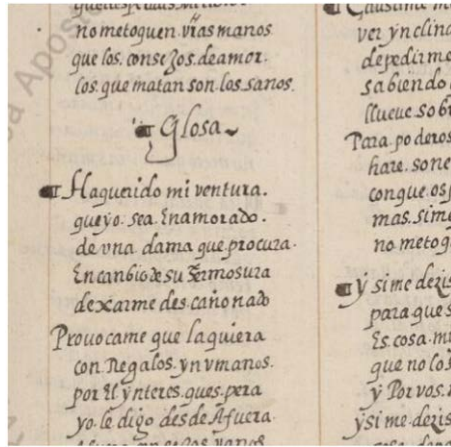 no metoquen vr̃as manos
que los. conseJos. deamor.
los. que matan son. los. sanos.
Glosa
Haquerido mi ventura.
queyo. sea. Enamorado.
de vna dama que procura.
En canbio de su Fermosura
dexarme des cañonado
Prouocame que laquiera
con Regalos. ynvmanos.
por El ynteres. ques. pera
yo. le digo desde Afuera.
ver ynclina
depedirme
sabiendo
llueue sob
Para. poderos
hare. sone
conque os
mas. sime
no metoq
y si me dezis
para que s
Es. cosa. mu
que no los
y Por vos.
ysi me. dezis